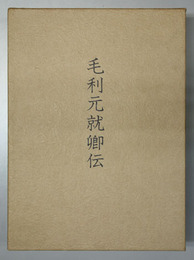 毛利元就卿伝